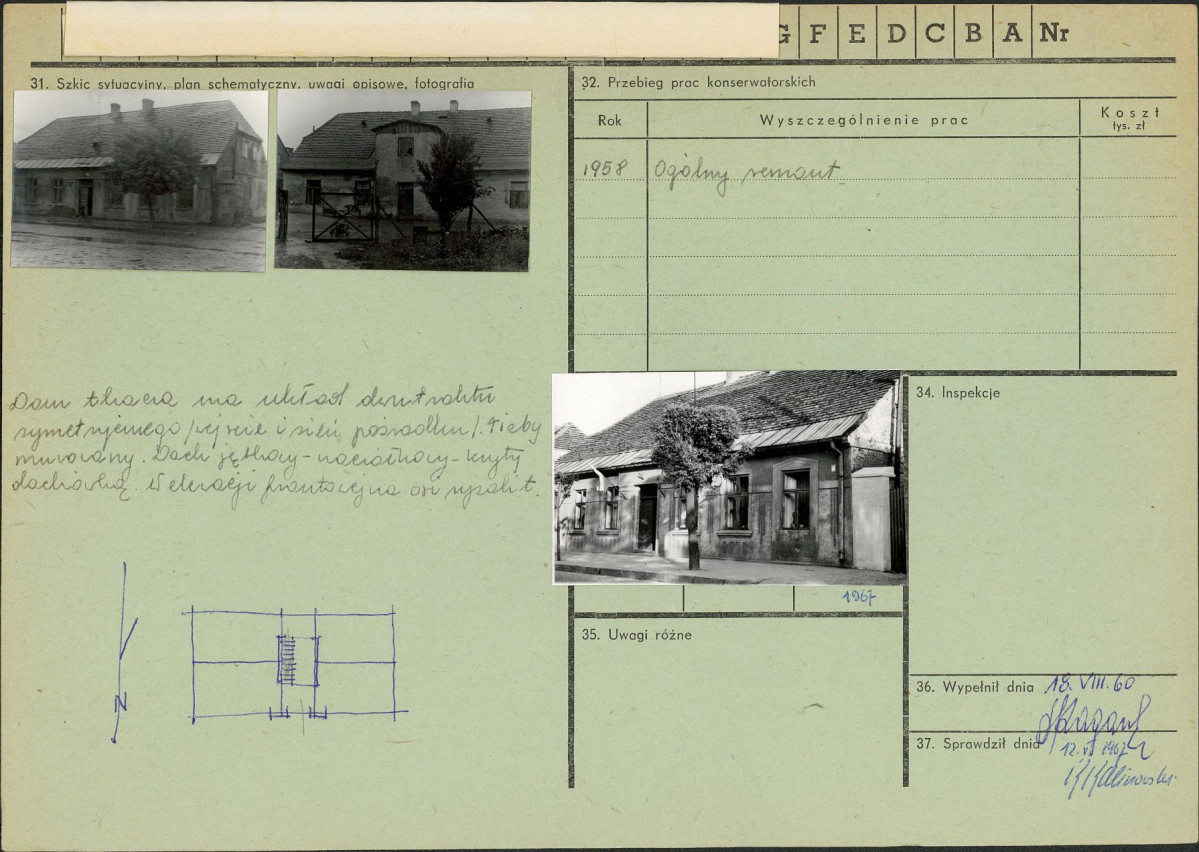 G F E D C B A Nr
31. Szkic sytuacyjny, plan schematyczny, uwagi opisowe, fotografia
Dom tkacza ma układ dwutraktu
symetrycznego / wejście i sień pośrodku /. Ściany
murowany. Dach jętkowy - naciótkowy - kryty
dachówką. W elewacji frontowej na osi ryzalit.
N
32. Przebieg prac konserwatorskich
Rok Wyszczególnienie prac Koszt
tys. zł
1958 Ogólny remont
1967
34. Inspekcje
35. Uwagi różne
36. Wypełnił dnia 18. VIII. 60
37. Sprawdził dnia 12. VI 1967
Kalinowski